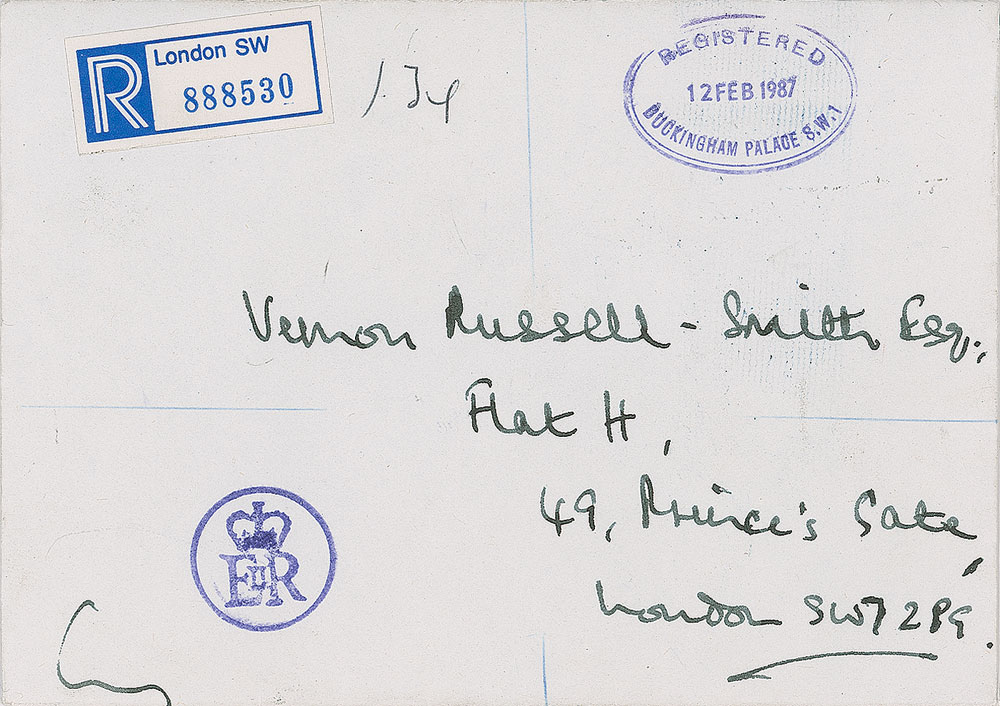 R London SW
888530
REGISTERED
12 FEB 1987
BUCKINGHAM PALACE S.W.1
Vernon Russell-Smith Esq.,
Flat H,
49, Prince's Gate,
London SW7 2PG.
EIIR